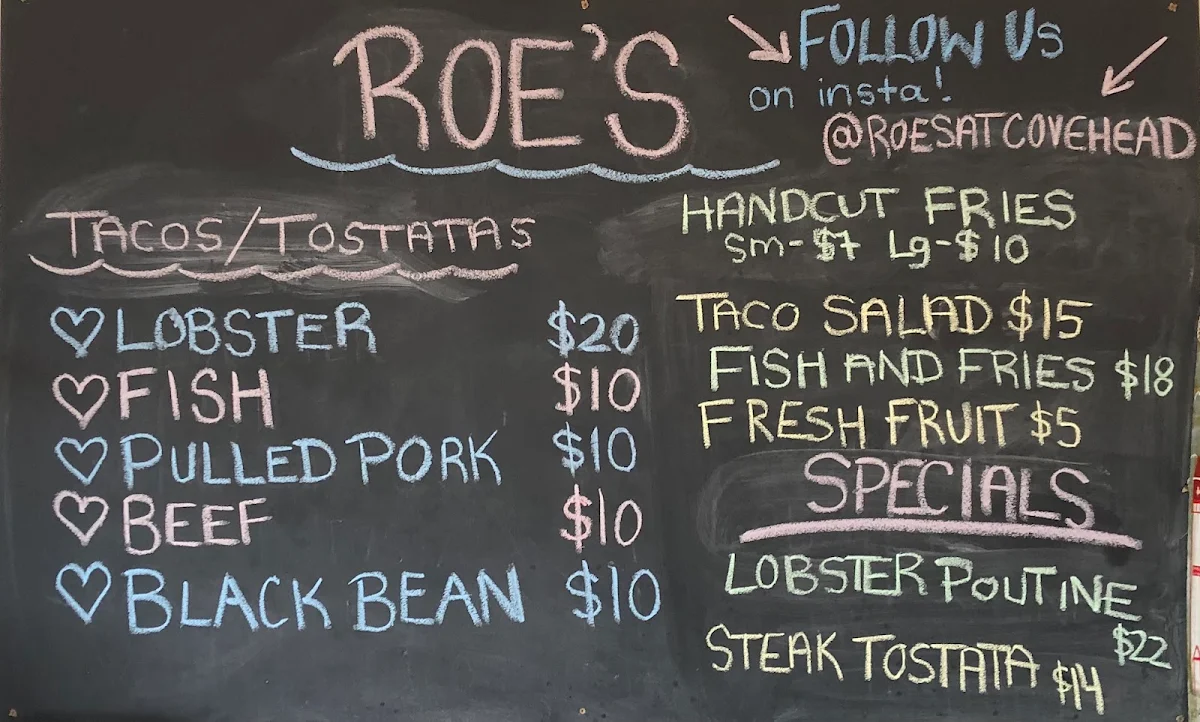 ROE'S
FOLLOW Us
on insta!
@ROESATCOVEHEAD
TACOS/TOSTATAS
LOBSTER $20
FISH $10
PULLED PORK $10
BEEF $10
BLACK BEAN $10
HANDCUT FRIES
Sm-$7 Lg-$10
TACO SALAD $15
FISH AND FRIES $18
FRESH FRUIT $5
SPECIALS
LOBSTER POUTINE
$22
STEAK TOSTATA $14